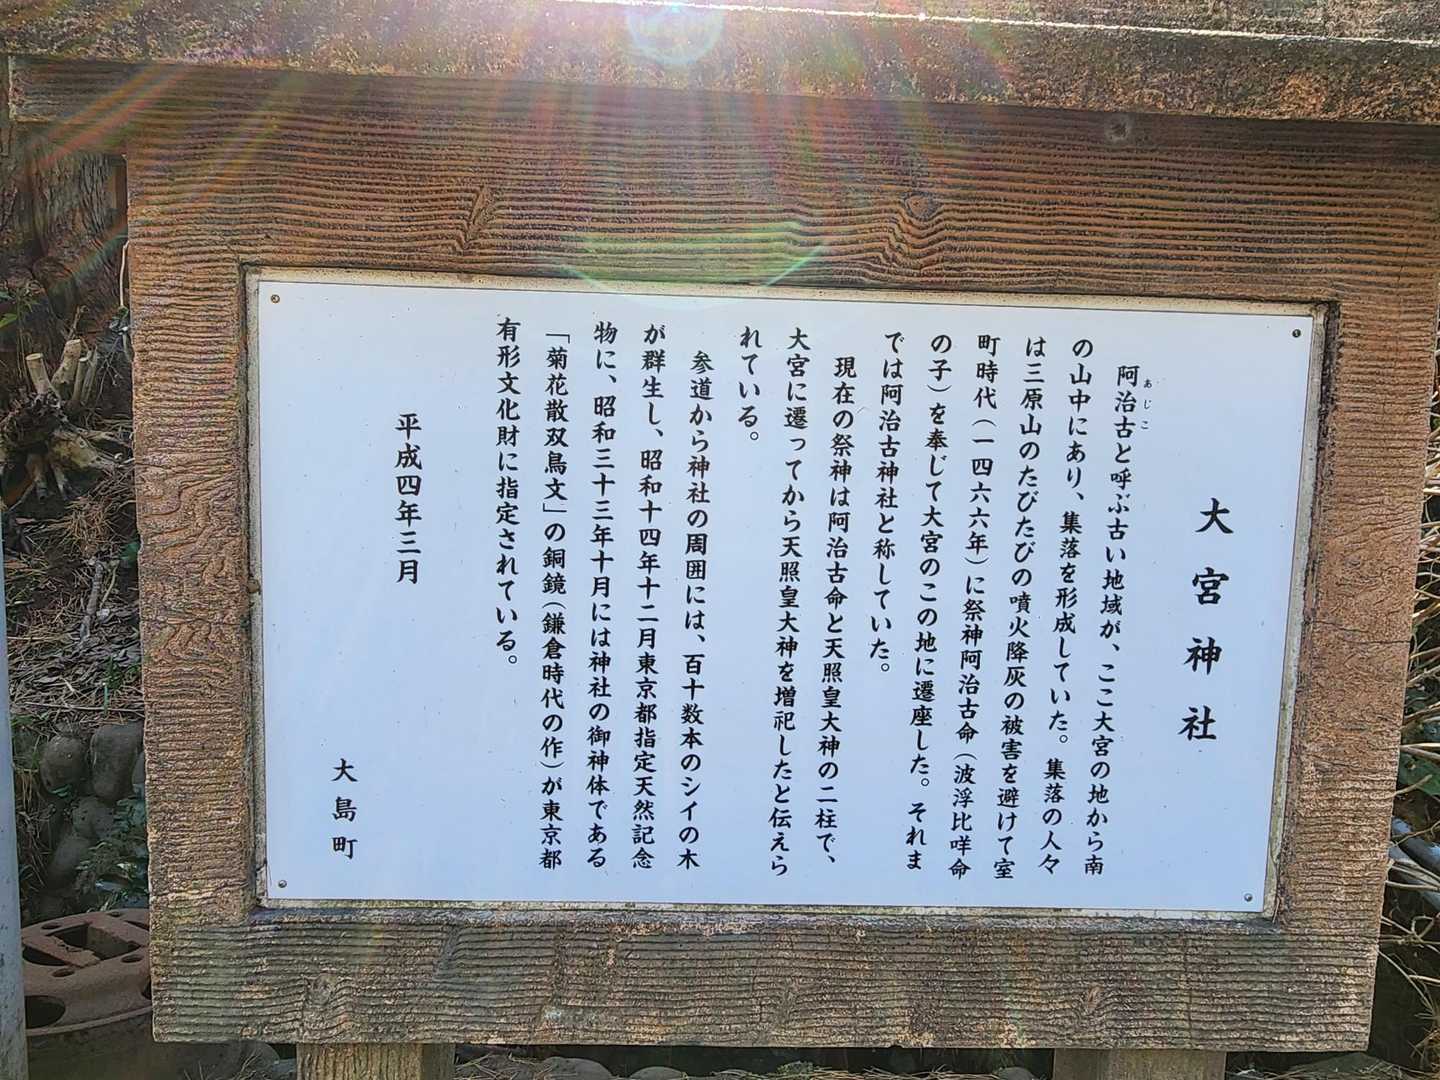 大宮神社
あじこ
阿治古と呼ぶ古い地域が、ここ大宮の地から南
の山中にあり、集落を形成していた。集落の人々
は三原山のたびたびの噴火降灰の被害を避けて室
町時代(一四六六年)に祭神阿治古命(波浮比咩命
の子)を奉じて大宮のこの地に遷座した。それま
では阿治古神社と称していた。
現在の祭神は阿治古命と天照皇大神の二柱で、
大宮に遷ってから天照皇大神を増祀したと伝えら
れている。
参道から神社の周囲には、百十数本のシイの木
が群生し、昭和十四年十二月東京都指定天然記念
物に、昭和三十三年十月には神社の御神体である
「菊花散双鳥文」の銅鏡(鎌倉時代の作)が東京都
有形文化財に指定されている。
平成四年三月
大島町